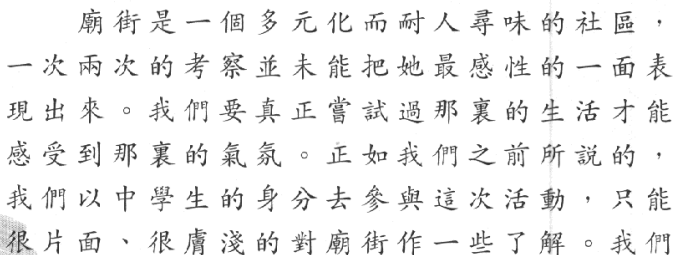 廟街是一個多元化而耐人尋味的社區，
一次兩次的考察並未能把她最感性的一面表
現出來。我們要真正嘗試過那裏的生活才能
感受到那裏的氣氛。正如我們之前所說的，
我們以中學生的身分去參與這次活動，只能
很片面、很膚淺的對廟街作一些了解。我們